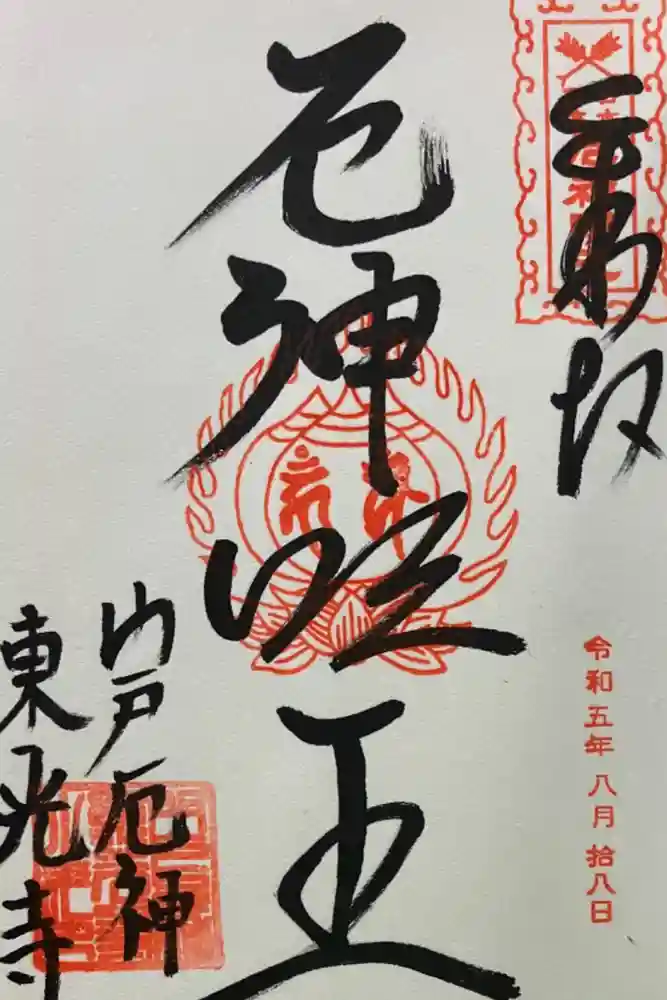 奉拝
令和五年 八月 拾八日
厄神明王
門戸厄神
東光寺